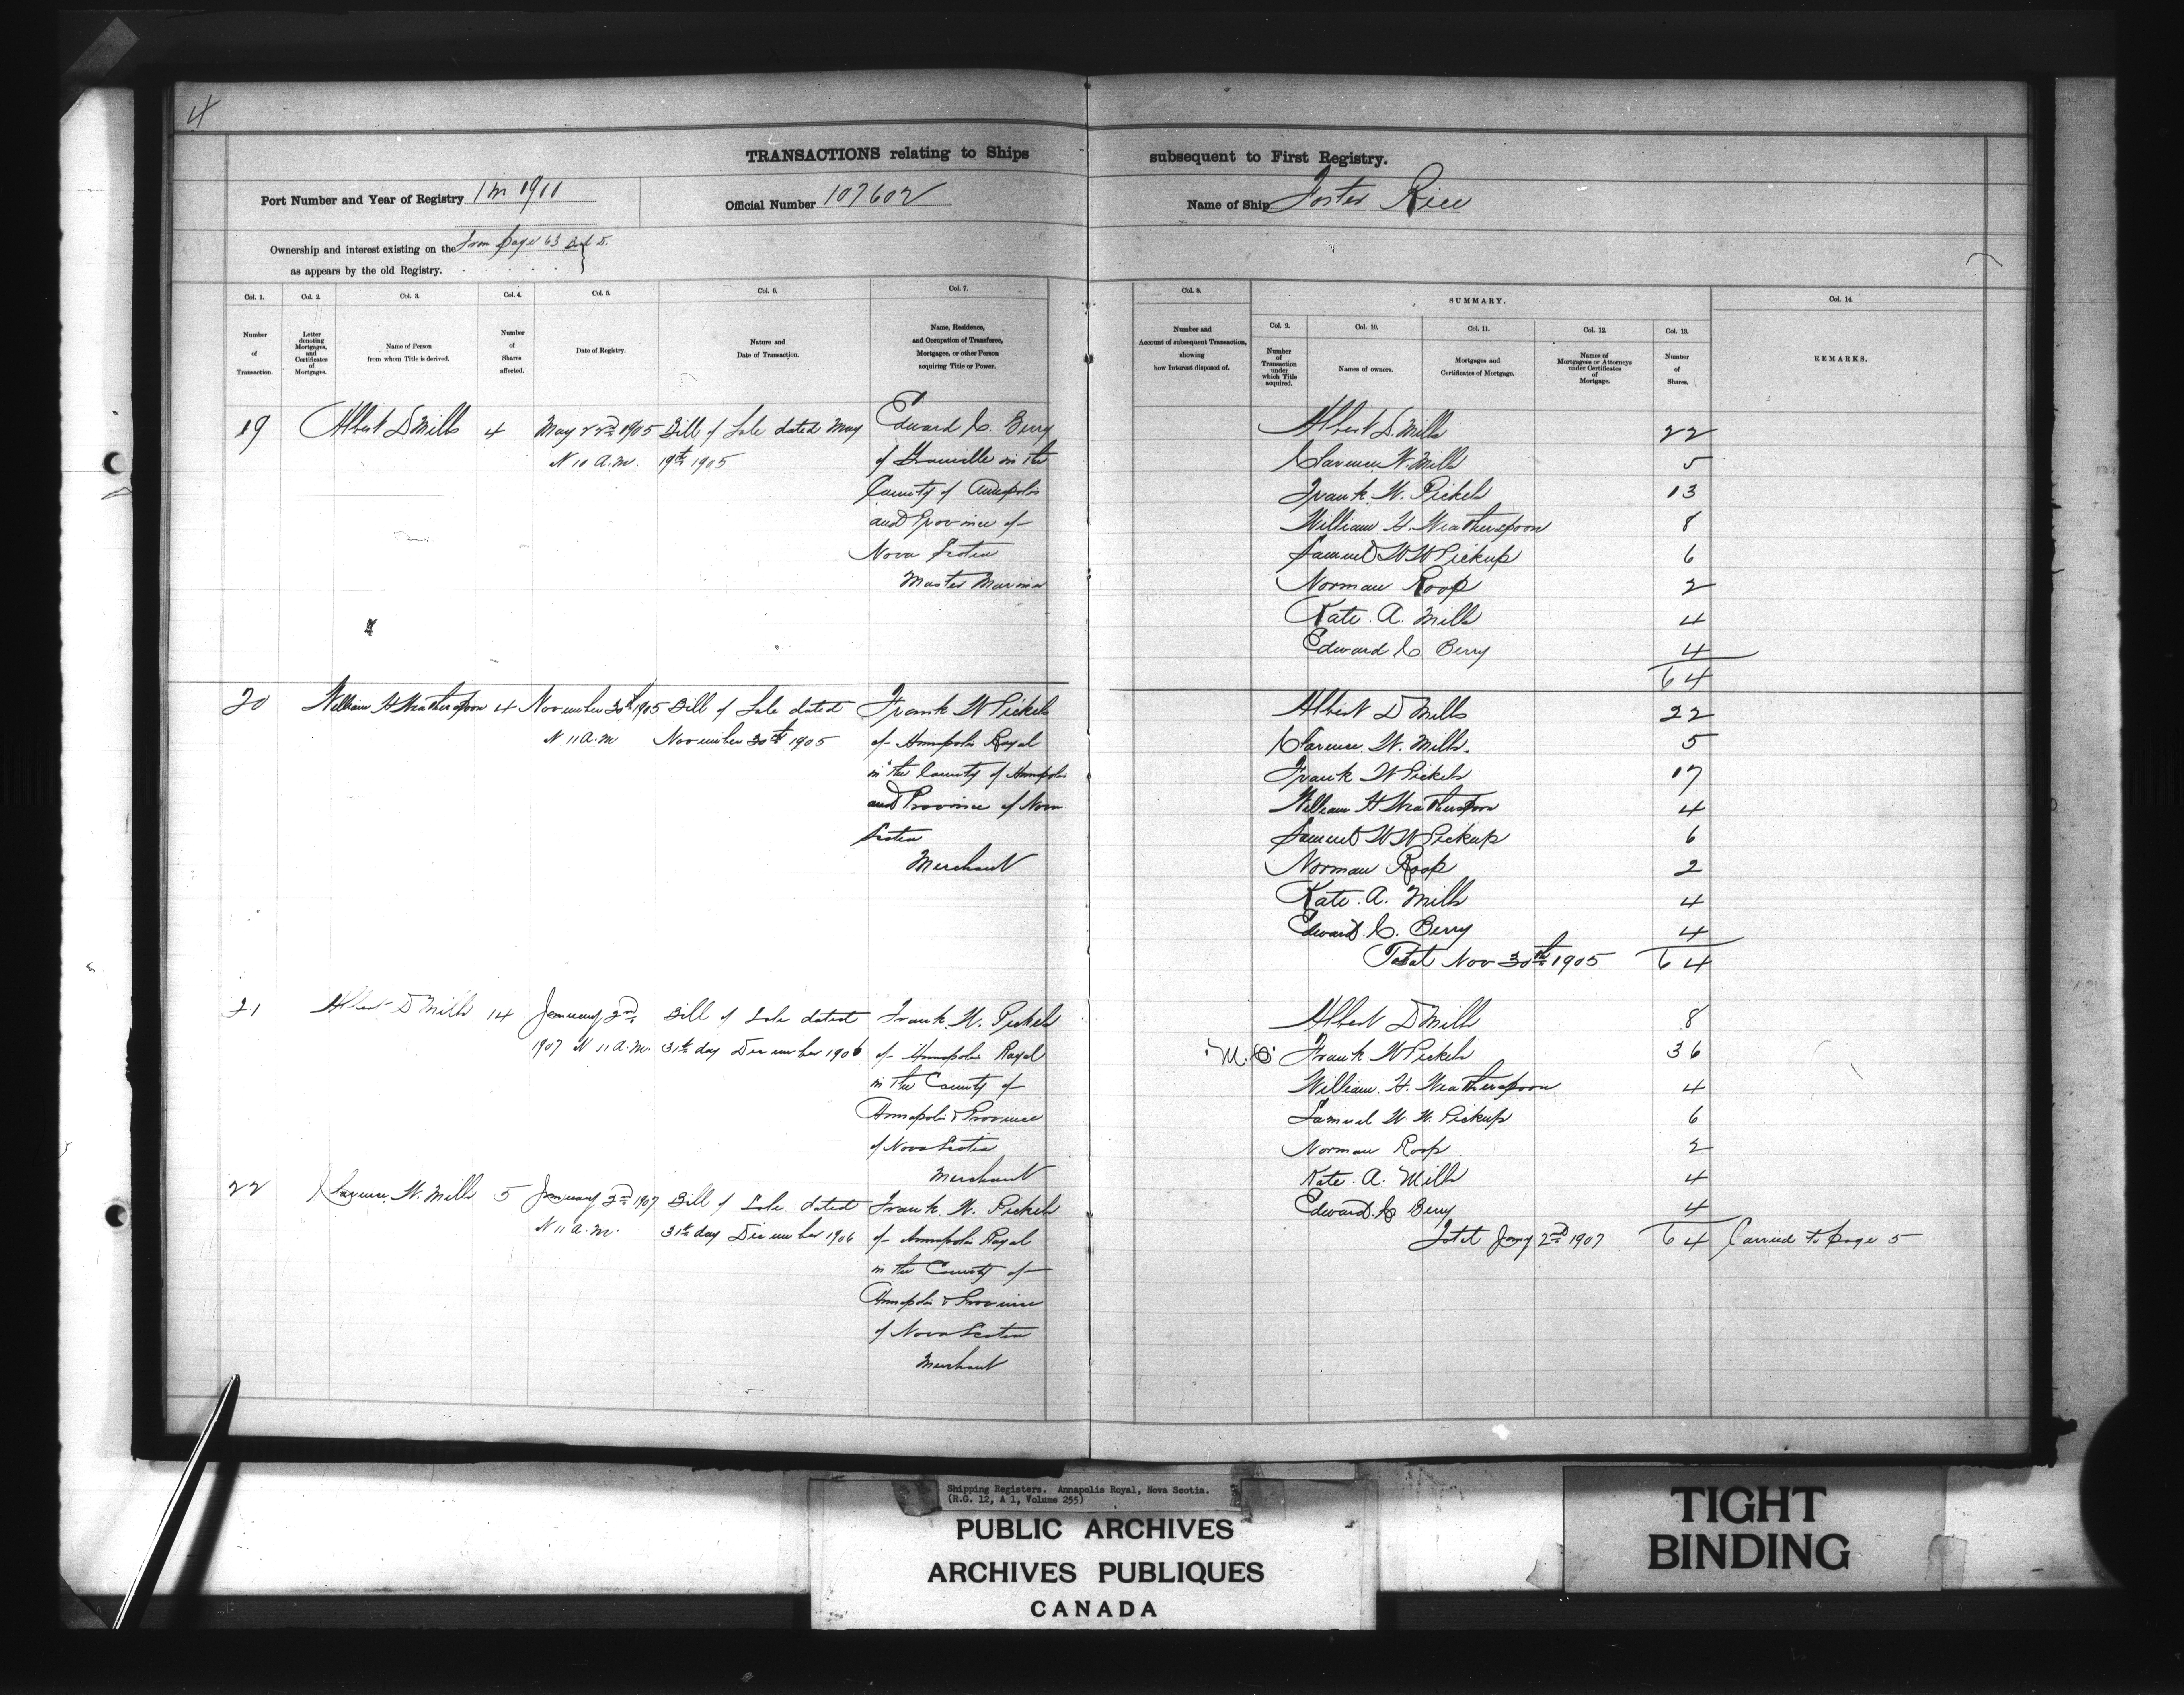 4
TRANSACTIONS relating to Ships subsequent to First Registry.
Port Number and Year of Registry 1 in 1901
Official Number 107602
Name of Ship Foster Rice
Ownership and interest existing on the From page 63
as appears by the old Registry.
Col. 1. Number of Transaction.
Col. 2. Letter denoting Mortgages, and Certificates of Mortgages.
Col. 3. Name of Person from whom Title is derived.
Col. 4. Number of Shares affected.
Col. 5. Date of Registry.
Col. 6. Nature and Date of Transaction.
Col. 7. Name, Residence, and Occupation of Transferee, Mortgagee, or other Person acquiring Title or Power.
Col. 8. Number and Account of subsequent Transaction, showing how Interest disposed of.
SUMMARY.
Col. 9. Number of Transaction under which Title acquired.
Col. 10. Names of owners.
Col. 11. Mortgages and Certificates of Mortgage.
Col. 12. Names of Mortgagees or Attorneys under Certificates of Mortgage.
Col. 13. Number of Shares.
Col. 14. REMARKS.
19 Albert D Mills 4 May 22nd 1905 Bill of Sale dated May Edward C. Berry
10 A.M. 19th 1905 of Granville in the
County of Annapolis
and Province of
Nova Scotia
Master Mariner
Albert D. Mills 22
Clarence W. Mills 5
Frank W. Pickels 13
William H. Weatherspoon 8
Samuel W W Pickup 6
Norman Roop 2
Kate A. Mills 4
Edward C. Berry 4
64
20 William H Weatherspoon 4 November 30th 1905 Bill of Sale dated Frank W Pickels
11 A.M November 30th 1905 of Annapolis Royal
in the County of Annapolis
and Province of Nova
Scotia
Merchant
Albert D Mills 22
Clarence W. Mills. 5
Frank W Pickels 17
William H Weatherspoon 4
Samuel W W Pickup 6
Norman Roop 2
Kate A. Mills 4
Edward C. Berry 4
Total Nov 30th 1905 64
21 Albert D Mills 14 January 2nd Bill of Sale dated Frank W. Pickels
1907 11 A.M. 31th day December 1906 of Annapolis Royal
in the County of
Annapolis & Province
of Nova Scotia
Merchant
22 Clarence W. Mills 5 January 2nd 1907 Bill of Sale dated Frank W. Pickels
11 A.M. 31th day December 1906 of Annapolis Royal
in the County of
Annapolis & Province
of Nova Scotia
Merchant
Albert D Mills 8
M.O. Frank W Pickels 36
William H. Weatherspoon 4
Samuel W. W. Pickup 6
Norman Roop 2
Kate A. Mills 4
Edward C Berry 4
Total Jany 2nd 1907 64 Carried to page 5
Shipping Registers. Annapolis Royal, Nova Scotia.
(R.G. 12, A 1, Volume 255)
PUBLIC ARCHIVES
ARCHIVES PUBLIQUES
CANADA
TIGHT
BINDING